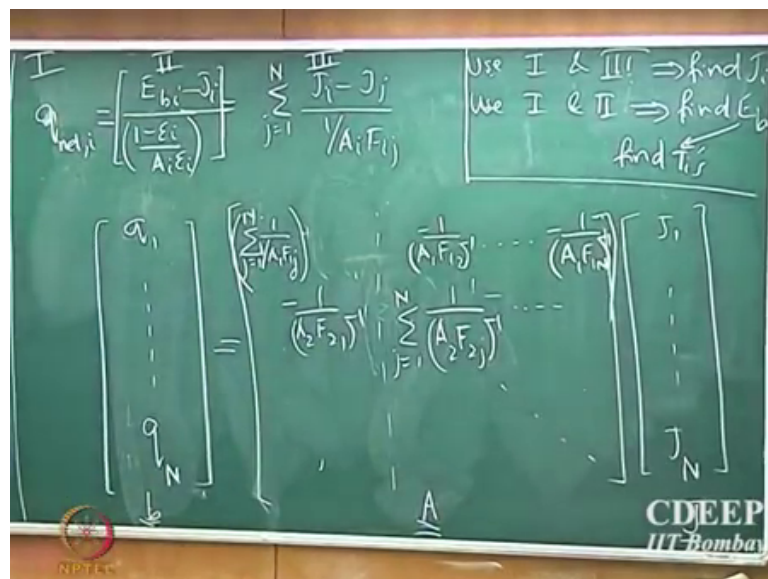 I II III
q_net,i = [E_bi - J_i / ((1-ε_i)/(A_i ε_i))] = Σ_{j=1}^{N} (J_i - J_j)/(1/A_i F_ij)
Use I & III! ⇒ find J_i
Use I & II ⇒ find E_b
find T_i's
[q_1 ⋮ q_N] = [(Σ_{j=1}^{N} 1/(1/A_1 F_1j)) -1/(A_1 F_12)^-1 ..... -1/(A_1 F_1N)^-1
-1/(A_2 F_21)^-1 Σ_{j=1}^{N} 1/(A_2 F_2j)^-1 - ....] [J_1 ⋮ J_N]
b A J
CDEEP
IIT Bombay
NPTEL